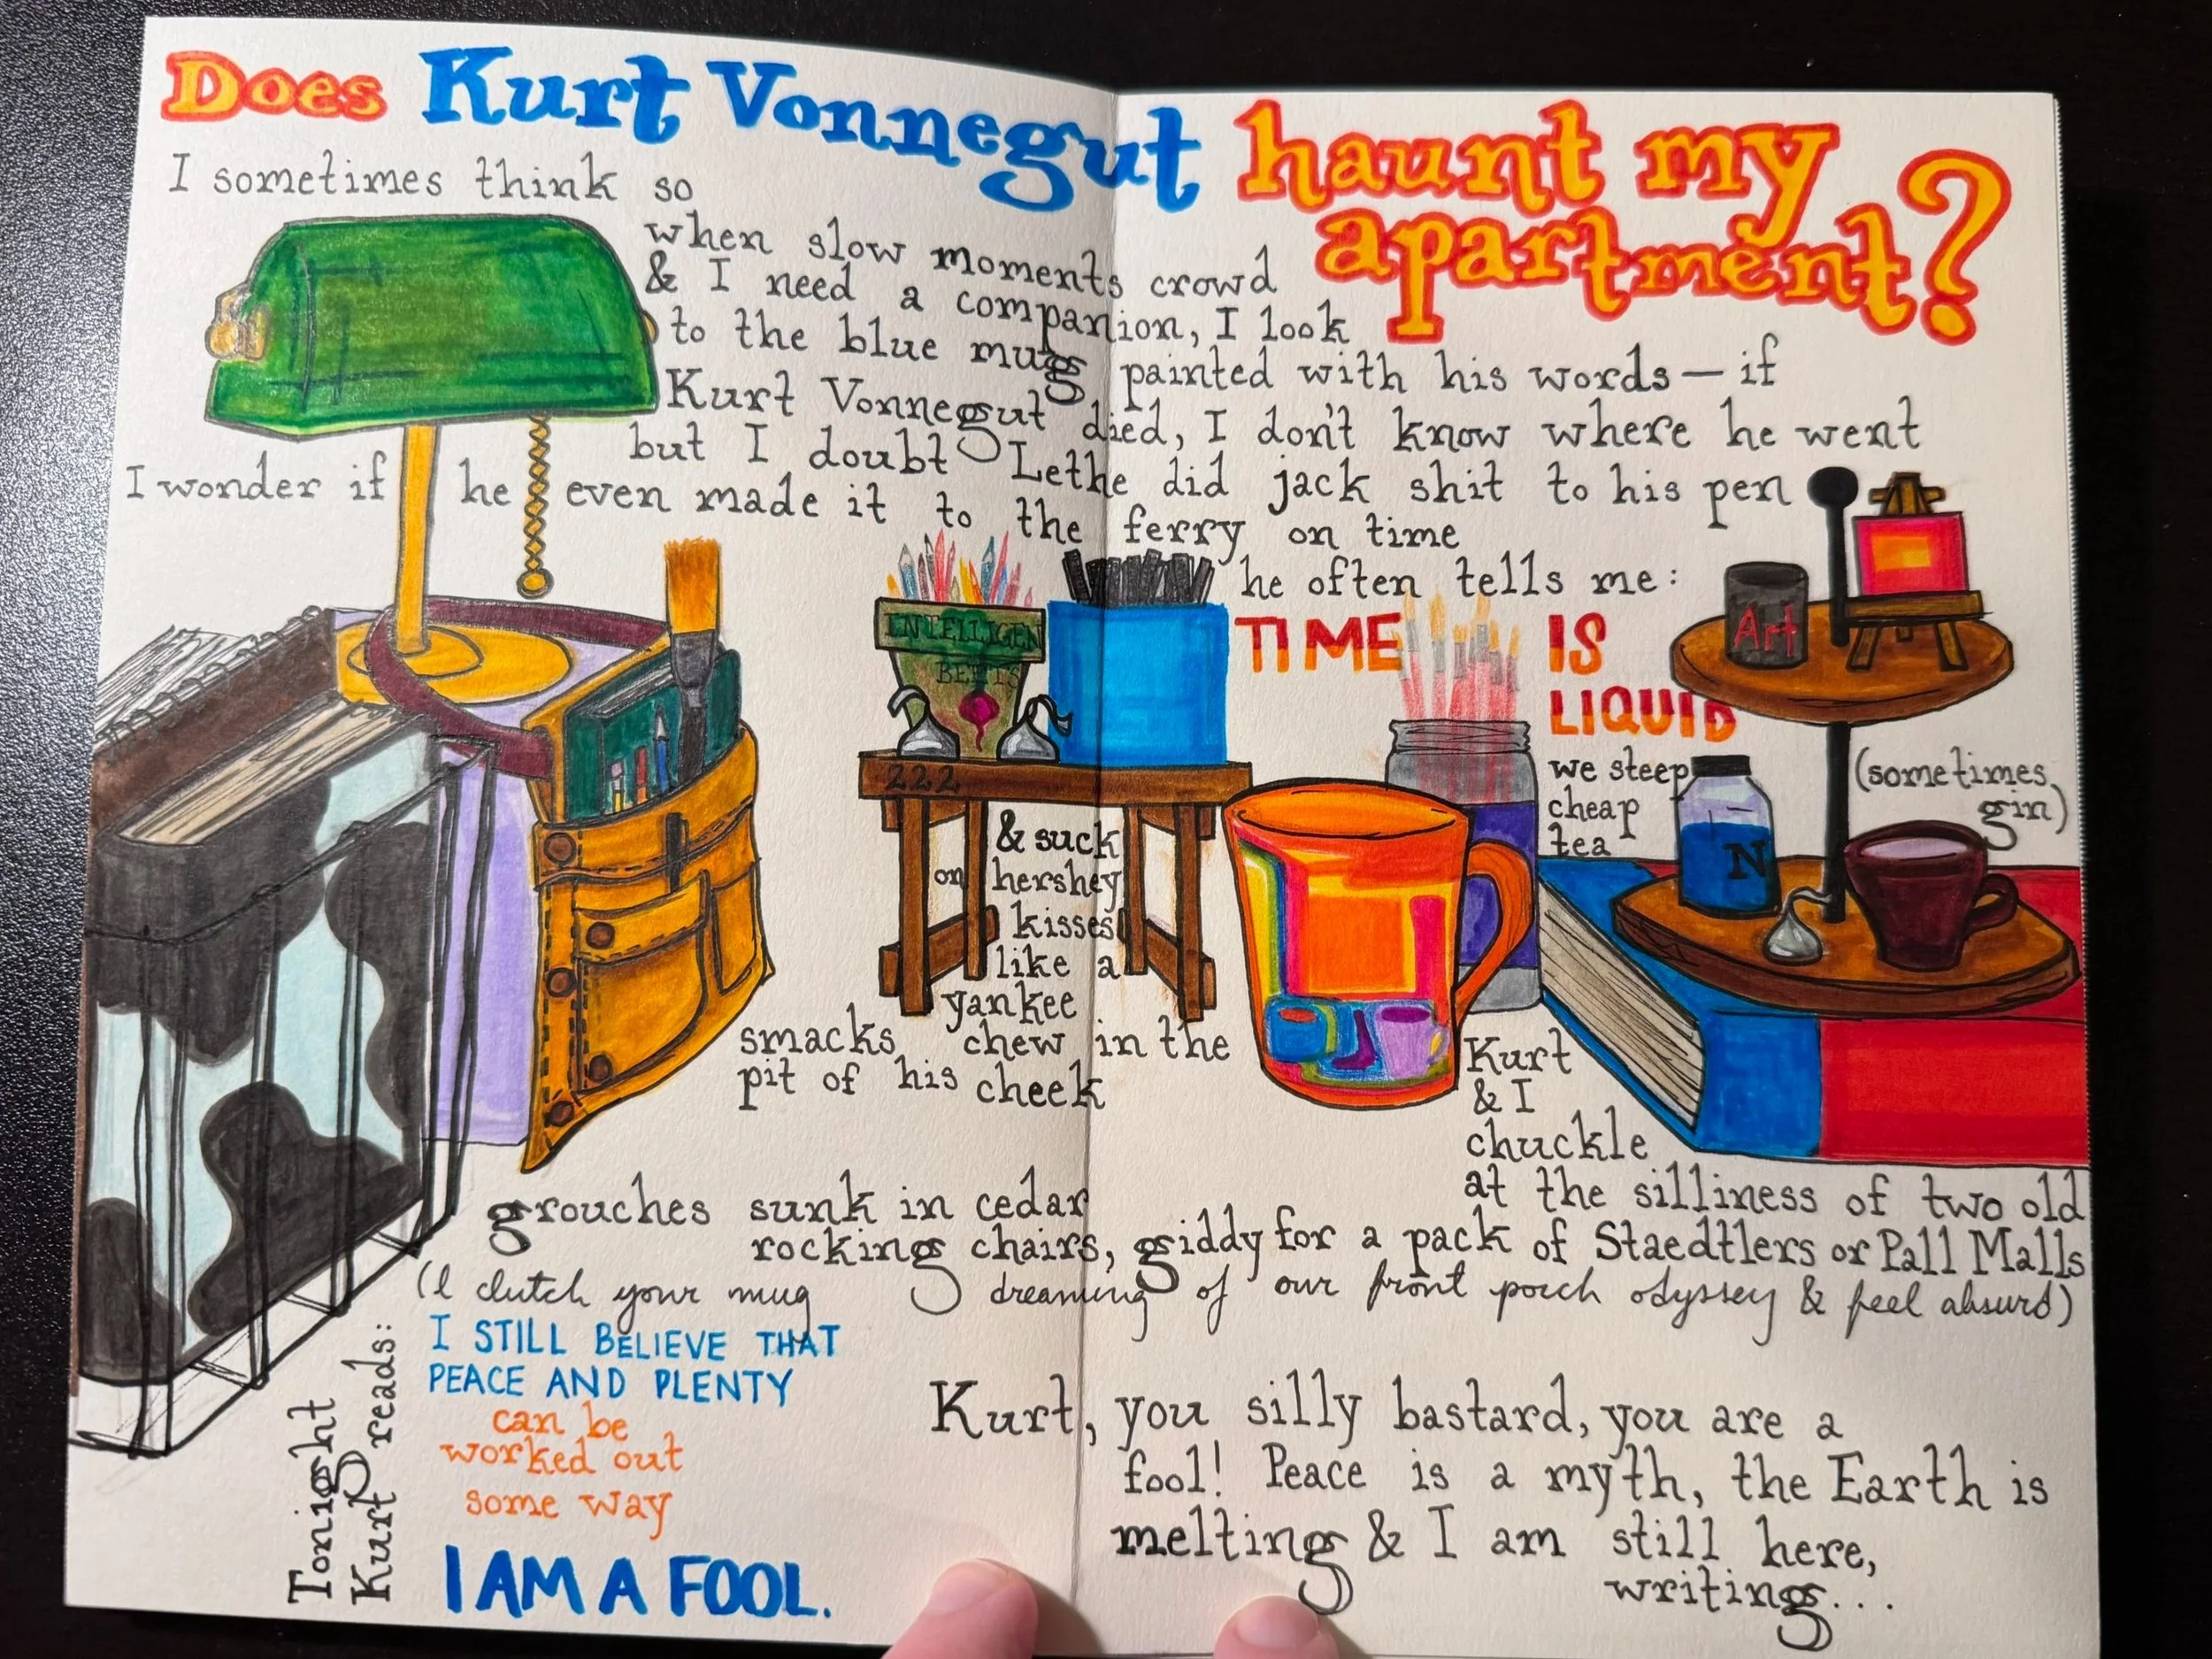 Does Kurt Vonnegut haunt my
apartment?
I sometimes think so
when slow moments crowd
& I need a companion, I look
to the blue mugs painted with his words — if
Kurt Vonnegut died, I don't know where he went
but I doubt Lethe did jack shit to his pen
I wonder if he even made it to the ferry on time
he often tells me:
TIME IS
LIQUID
we steep
cheap
tea
(sometimes
gin)
Art
N
INTELLIGEN
BEETS
222
& suck
on hershey
kisses
like a
yankee
smacks chew in the
pit of his cheek
Kurt
& I
chuckle
at the silliness of two old
grouches sunk in cedar
rocking chairs, giddy for a pack of Staedtlers or Pall Malls
(I clutch your mug dreaming of our front porch odyssey & feel absurd)
Tonight
Kurt reads:
I STILL BELIEVE THAT
PEACE AND PLENTY
can be
worked out
some way
I AM A FOOL.
Kurt, you silly bastard, you are a
fool! Peace is a myth, the Earth is
melting & I am still here,
writing...